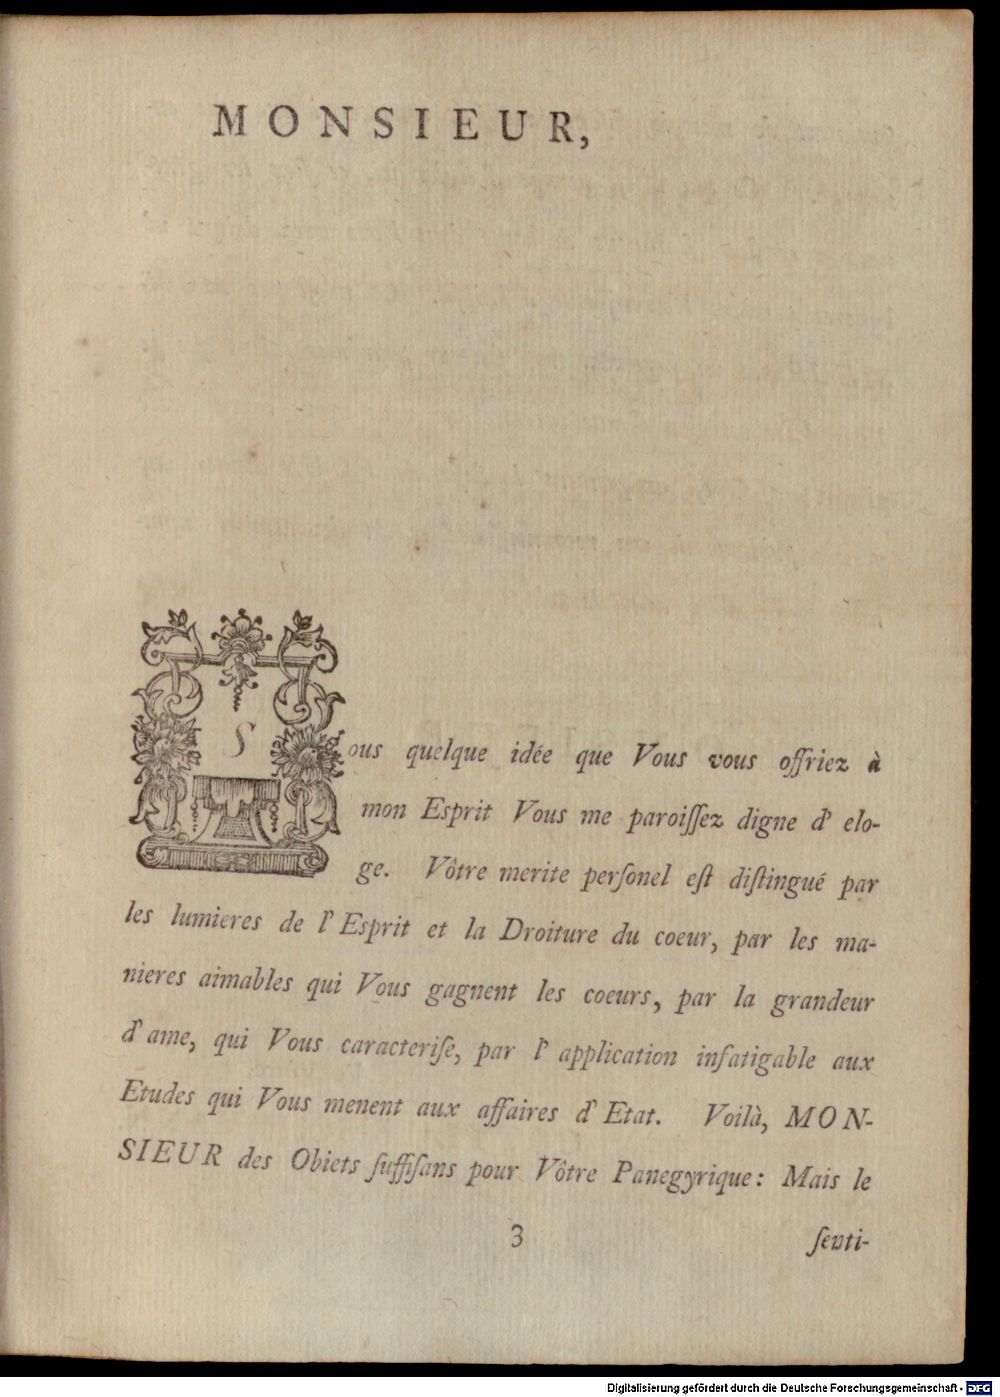 MONSIEUR,
Sous quelque idée que Vous vous offriez à
mon Esprit Vous me paroiſſez digne d' elo-
ge. Vôtre merite perſonel eſt diſtingué par
les lumieres de l' Esprit et la Droiture du coeur, par les ma-
nieres aimables qui Vous gagnent les coeurs, par la grandeur
d' ame, qui Vous caracteriſe, par l' application infatigable aux
Etudes qui Vous menent aux affaires d' Etat. Voilà, MON-
SIEUR des Obiets ſuffiſans pour Vôtre Panegyrique: Mais le
3
ſenti-
Digitalisierung gefördert durch die Deutsche Forschungsgemeinschaft - DFG